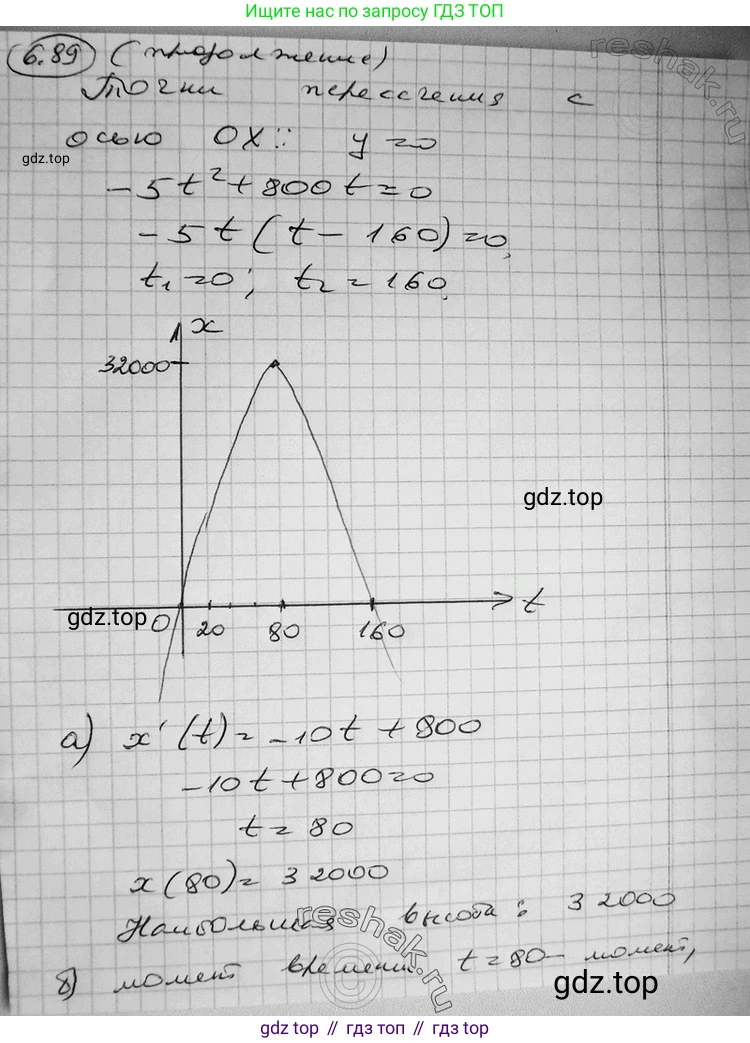 Ищите нас по запросу ГДЗ ТОП
6.89 (продолжение)
Точки пересечения с
осью OX: y=0
gdz.top
-5t²+800t=0
-5t(t-160)=0,
t₁=0; t₂=160.
x
32000
gdz.top
t
gdz.top
0 20 80 160
а) x'(t)=-10t+800
-10t+800=0
t=80
x(80)=32000
Наибольшая высота: 32000
б) момент времени t=80- момент,
gdz.top
reshak.ru
reshak.ru
gdz top // гдз топ // gdz top